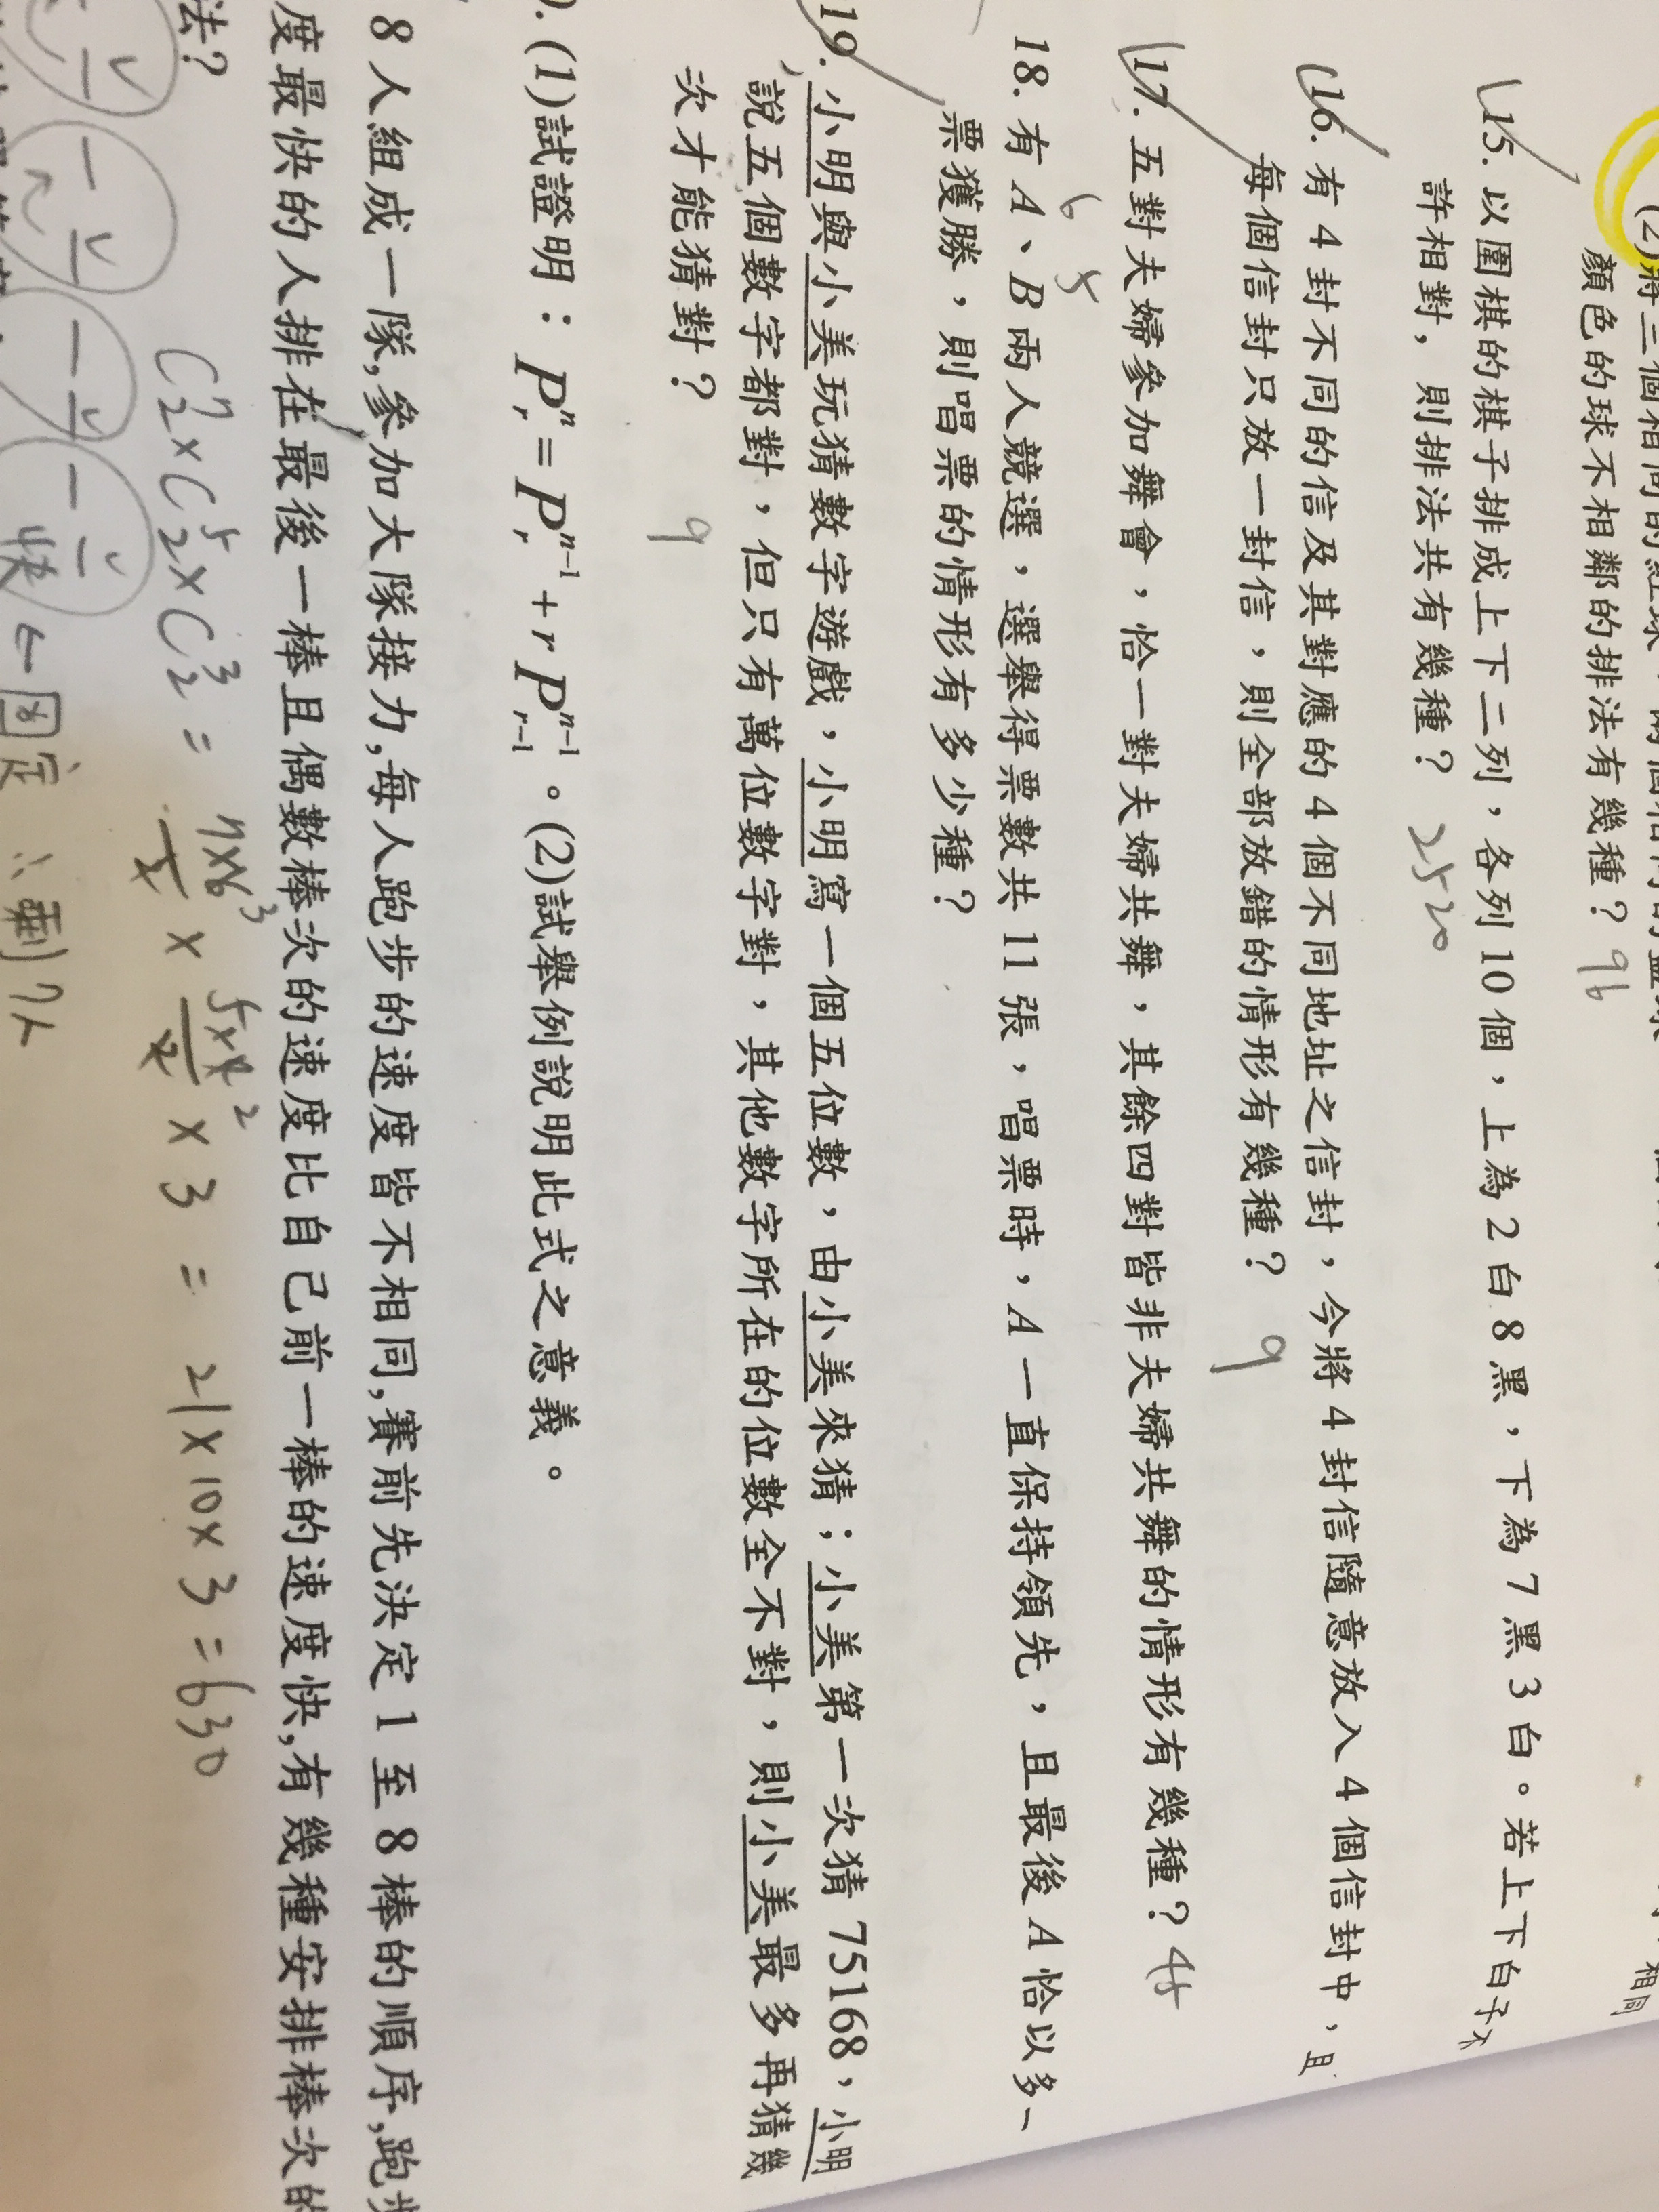 (2)將三個相同的紅球、兩個相同的藍球
相同
顏色的球不相鄰的排法有幾種？ 96
15. 以圍棋的棋子排成上下二列，各列10個，上為2白8黑，下為7黑3白。若上下白子不
許相對，則排法共有幾種？ 2520
16. 有4封不同的信及其對應的4個不同地址之信封，今將4封信隨意放入4個信封中，且
每個信封只放一封信，則全部放錯的情形有幾種？ 9
17. 五對夫婦參加舞會，恰一對夫婦共舞，其餘四對皆非夫婦共舞的情形有幾種？ 45
6 5
18. 有A、B兩人競選，選舉得票數共11張，唱票時，A一直保持領先，且最後A恰以多一
票獲勝，則唱票的情形有多少種？
19. 小明與小美玩猜數字遊戲，小明寫一個五位數，由小美來猜；小美第一次猜75168，小明
說五個數字都對，但只有萬位數字對，其他數字所在的位數全不對，則小美最多再猜幾
次才能猜對？ 9
(1)試證明：P^n_r = P^{n-1}_r + r P^{n-1}_{r-1}。(2)試舉例說明此式之意義。
8人組成一隊,參加大隊接力,每人跑步的速度皆不相同,賽前先決定1至8棒的順序,跑步
度最快的人排在最後一棒且偶數棒次的速度比自己前一棒的速度快,有幾種安排棒次的
法？
C^7_2 × C^5_2 × C^3_2 = 7×6/2 × 5×4/2 × 3 = 21×10×3 = 630
快 ← 固定 ∴剩7人